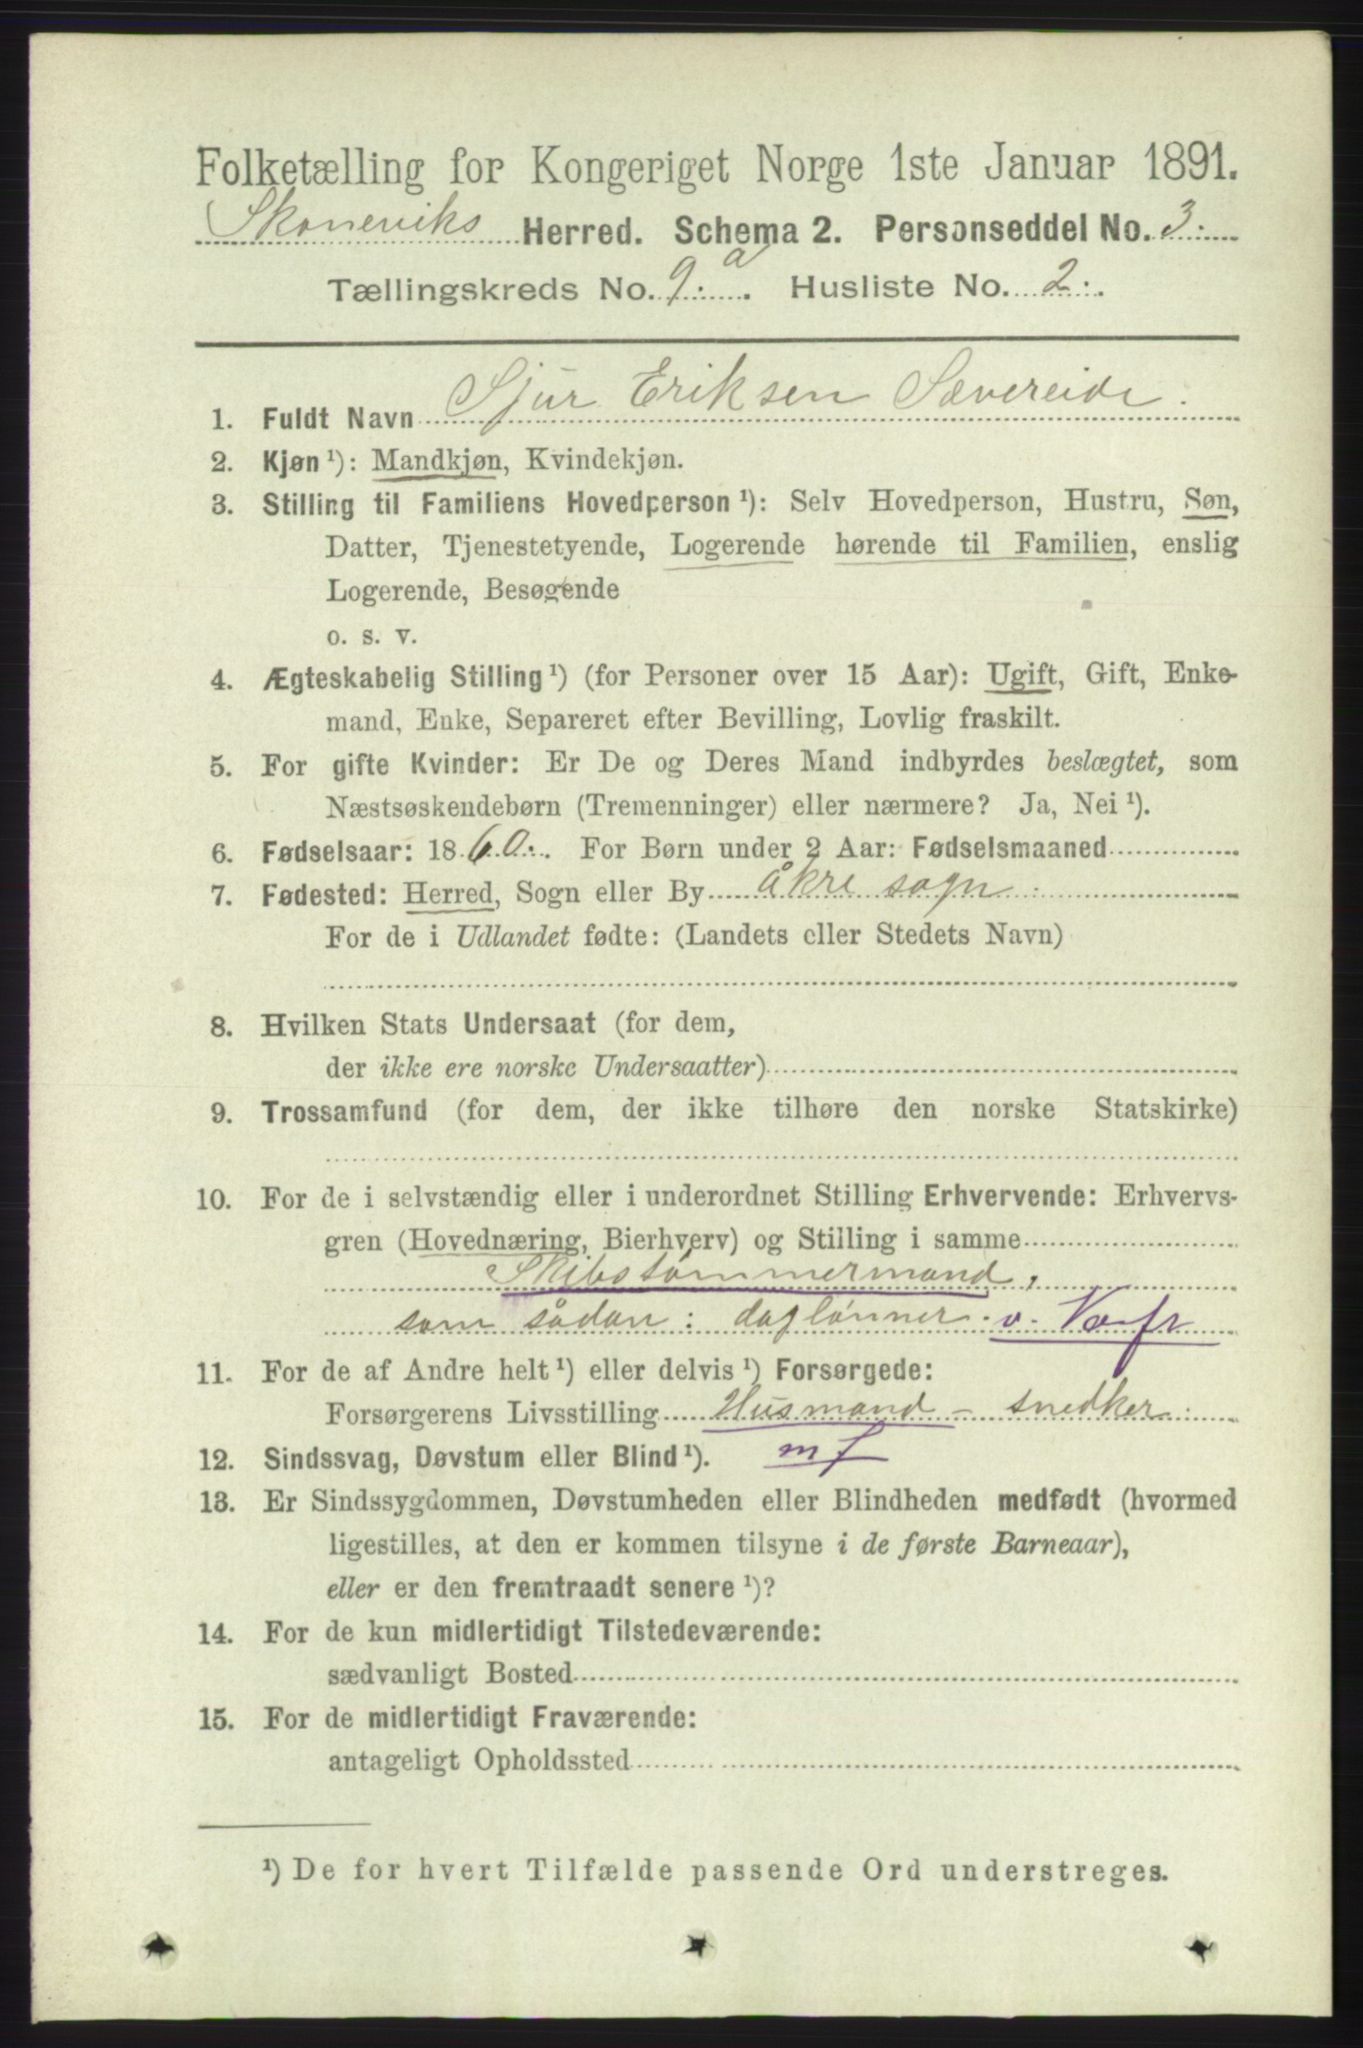 Folketælling for Kongeriget Norge 1ste Januar 1891.
Skoneviks Herred. Schema 2. Personseddel No. 3.
Tællingskreds No. 9. a. Husliste No. 2.
1. Fuldt Navn Sjur Eriksen Sævereide.
2. Kjøn ¹): Mandkjøn, Kvindekjøn.
3. Stilling til Familiens Hovedperson ¹): Selv Hovedperson, Hustru, Søn,
Datter, Tjenestetyende, Logerende hørende til Familien, enslig
Logerende, Besøgende
o. s. v.
4. Ægteskabelig Stilling ¹) (for Personer over 15 Aar): Ugift, Gift, Enke-
mand, Enke, Separeret efter Bevilling, Lovlig fraskilt.
5. For gifte Kvinder: Er De og Deres Mand indbyrdes beslægtet, som
Næstsøskendebørn (Tremenninger) eller nærmere? Ja, Nei ¹).
6. Fødselsaar: 1860. For Børn under 2 Aar: Fødselsmaaned
7. Fødested: Herred, Sogn eller By åkre sogn.
For de i Udlandet fødte: (Landets eller Stedets Navn)
8. Hvilken Stats Undersaat (for dem,
der ikke ere norske Undersaatter)
9. Trossamfund (for dem, der ikke tilhøre den norske Statskirke)
10. For de i selvstændig eller i underordnet Stilling Erhvervende: Erhvervs-
gren (Hovednæring, Bierhverv) og Stilling i samme
Skibstømmermand,
som sådan: daglønner. v. Værft
11. For de af Andre helt ¹) eller delvis ¹) Forsørgede:
Forsørgerens Livsstilling Husmand - snedker.
12. Sindssvag, Døvstum eller Blind ¹). m f
13. Er Sindssygdommen, Døvstumheden eller Blindheden medfødt (hvormed
ligestilles, at den er kommen tilsyne i de første Barneaar),
eller er den fremtraadt senere ¹)?
14. For de kun midlertidigt Tilstedeværende:
sædvanligt Bosted
15. For de midlertidigt Fraværende:
antageligt Opholdssted
¹) De for hvert Tilfælde passende Ord understreges.